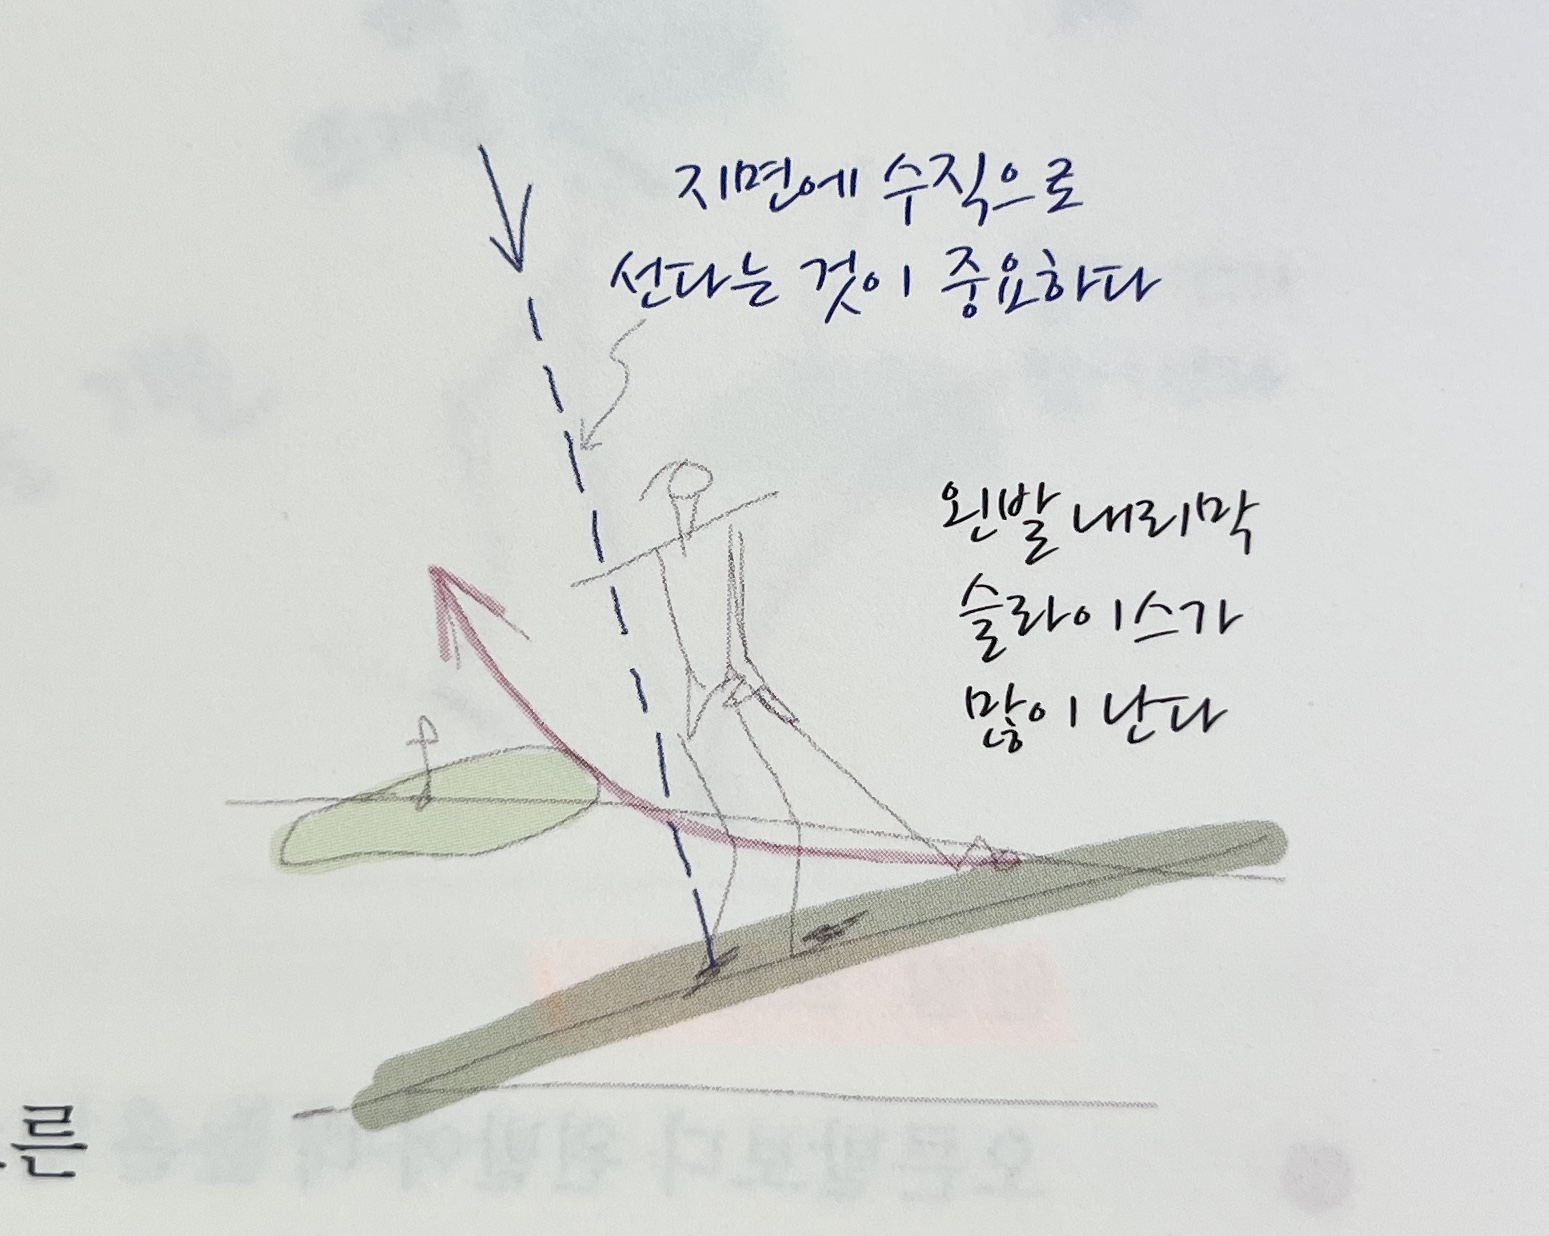 지면에 수직으로
선다는 것이 중요하다
왼발 내리막
슬라이스가
많이 난다
른